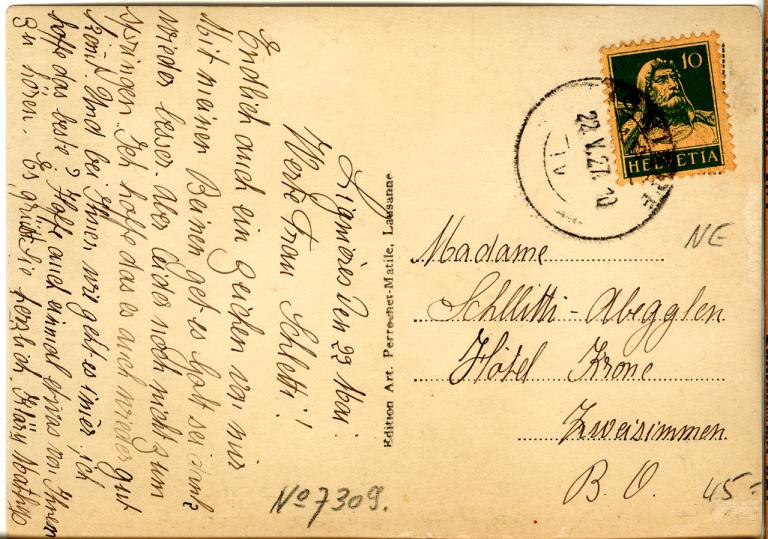 Lignières den 22 Mai.
Werte Frau Schletti!
Endlich auch ein Zeichen von mir
Mit meinen Beinen get es Gott sei dank
wieder besser. Aber leider noch nicht zum
springen. Ich hoffe das es auch wieder gut
kömt. Und bei Ihnen wie geht es imer, ich
hoffe das beste? Hoffe auch einmal etwas von Ihnen
zu hören. Es grüßt Sie herzlich. Kläry
Edition Art. Perrochet-Matile, Lausanne
22.V.27. 10
10
HELVETIA
NE
Madame
Schlitti-Abegglen
Hôtel Krone
Zweisimmen.
B. O.
45-
No 7309.